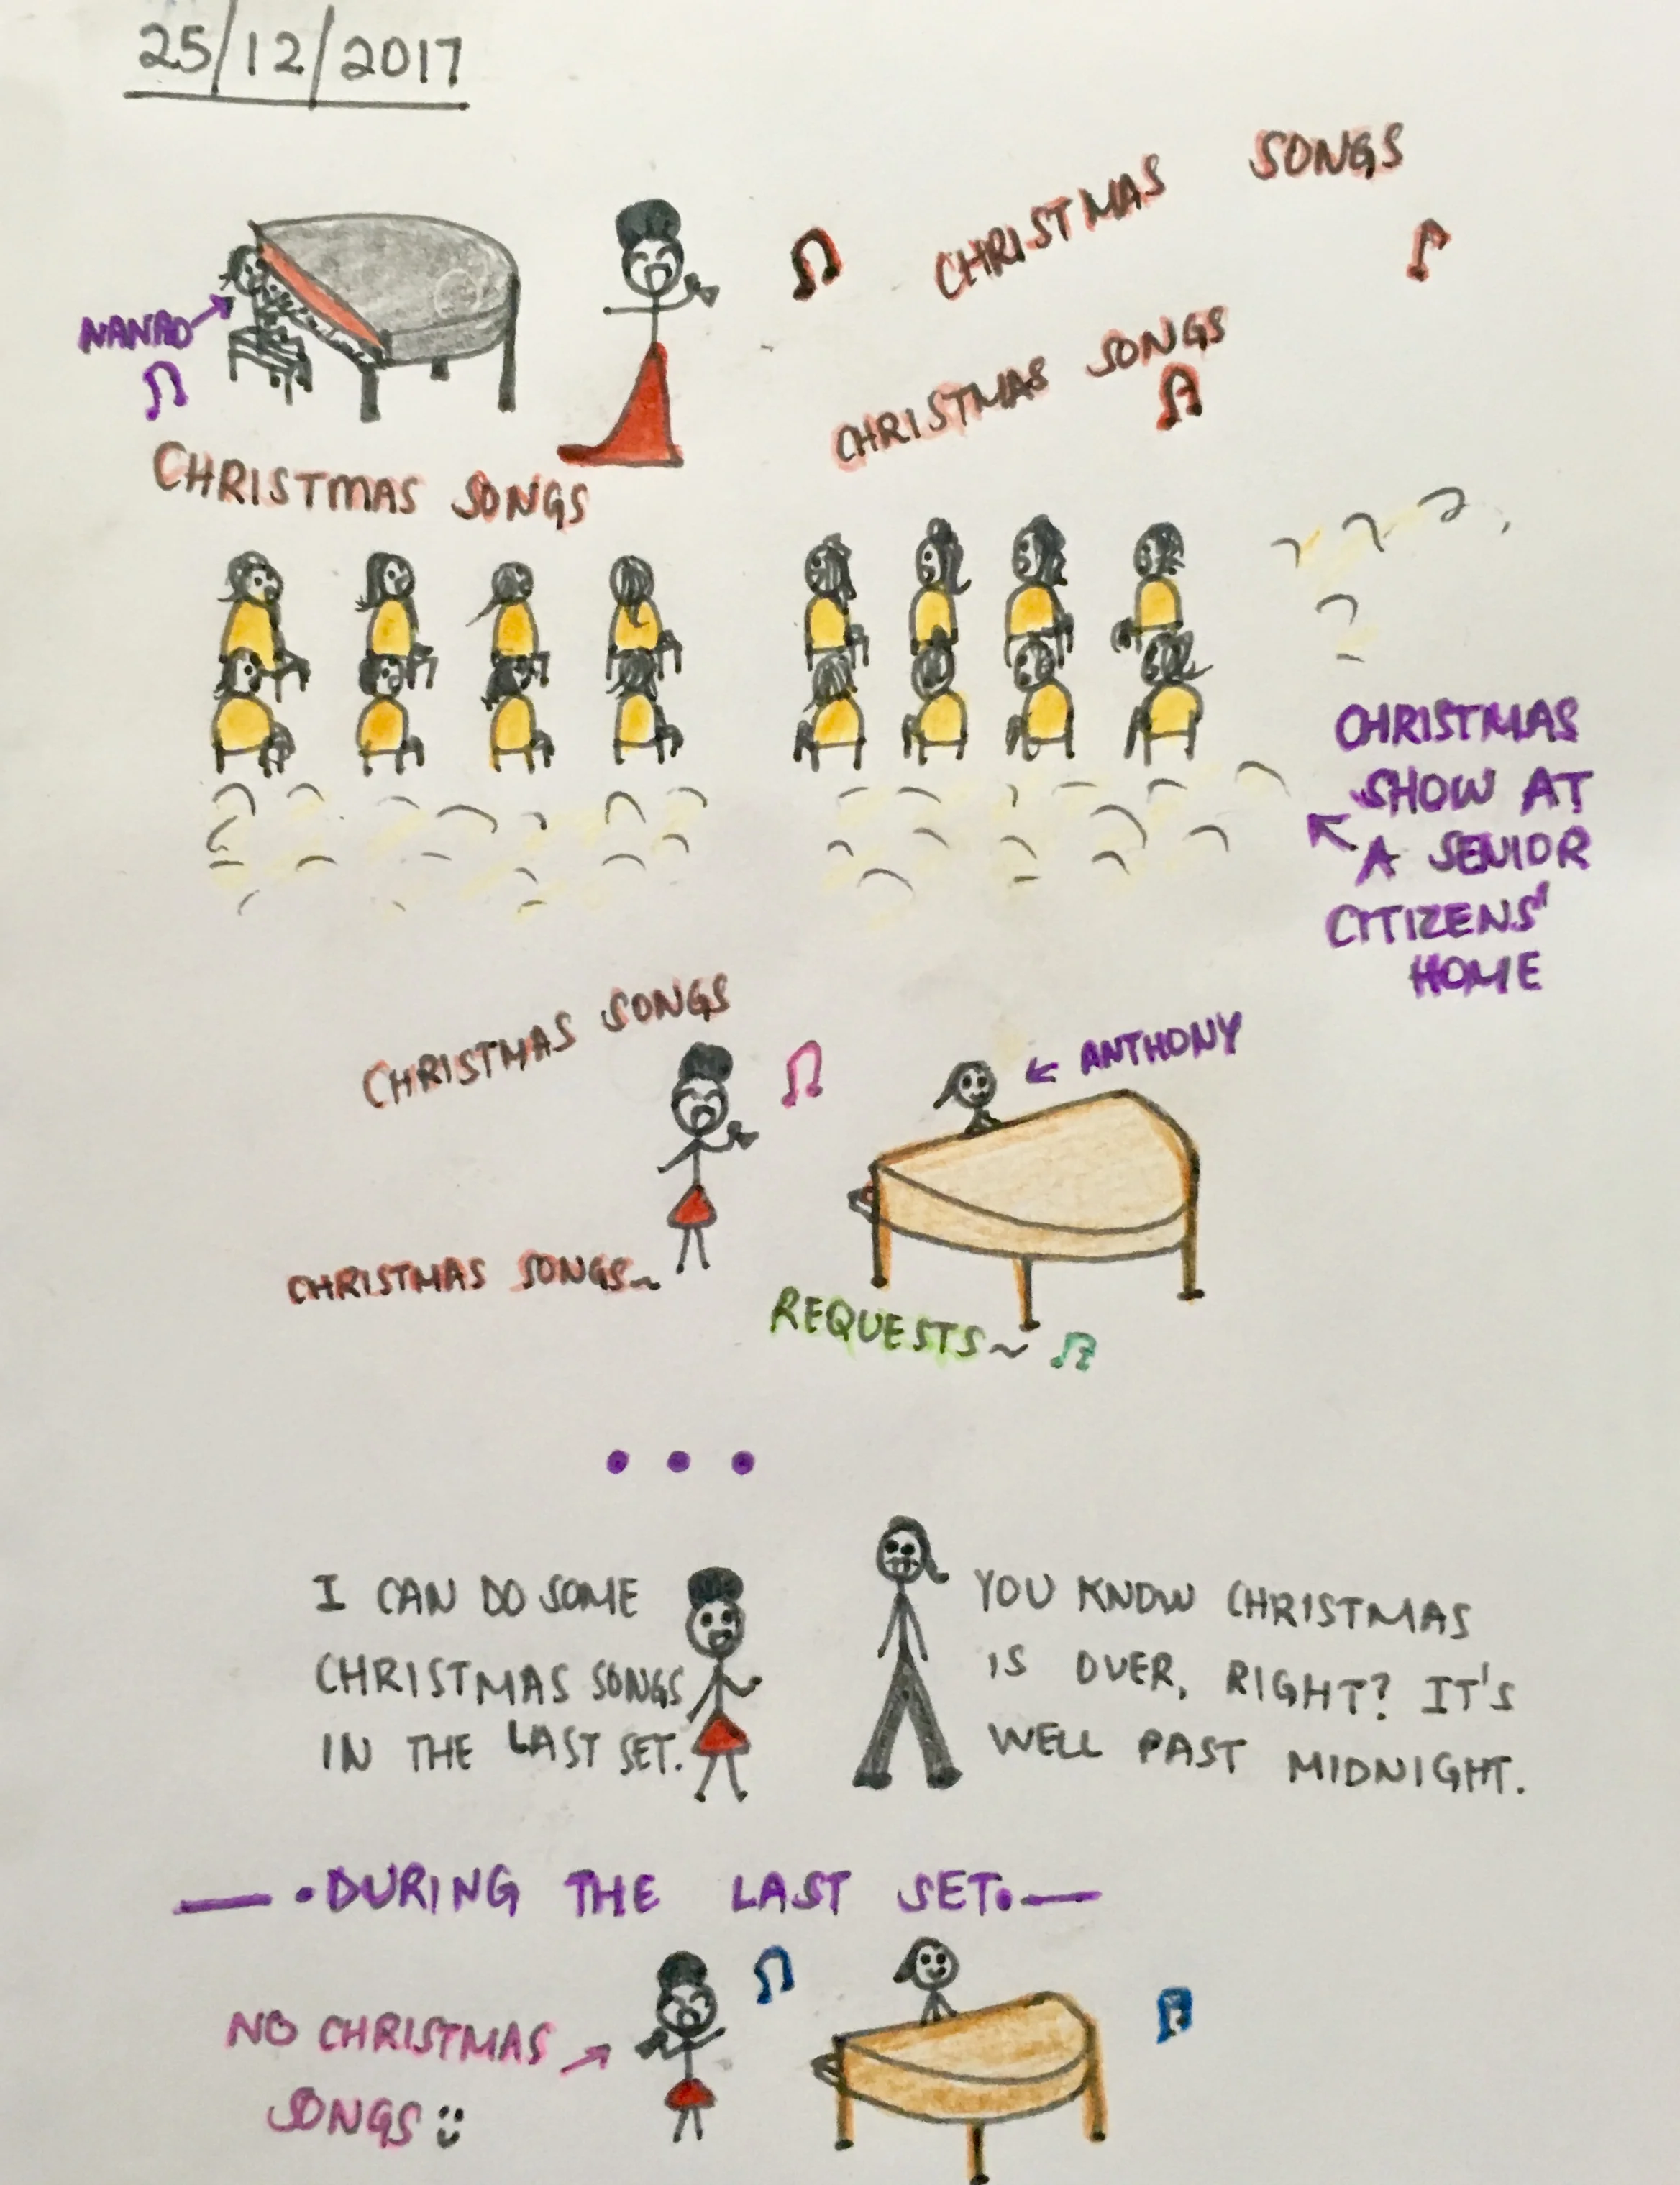 25/12/2017
CHRISTMAS SONGS
NANAO
CHRISTMAS SONGS
CHRISTMAS SONGS
CHRISTMAS
SHOW AT
A SENIOR
CITIZENS'
HOME
CHRISTMAS SONGS
ANTHONY
CHRISTMAS SONGS~
REQUESTS~
...
I CAN DO SOME
CHRISTMAS SONGS
IN THE LAST SET.
YOU KNOW CHRISTMAS
IS OVER, RIGHT? IT'S
WELL PAST MIDNIGHT.
— •DURING THE LAST SET•—
NO CHRISTMAS
SONGS :)